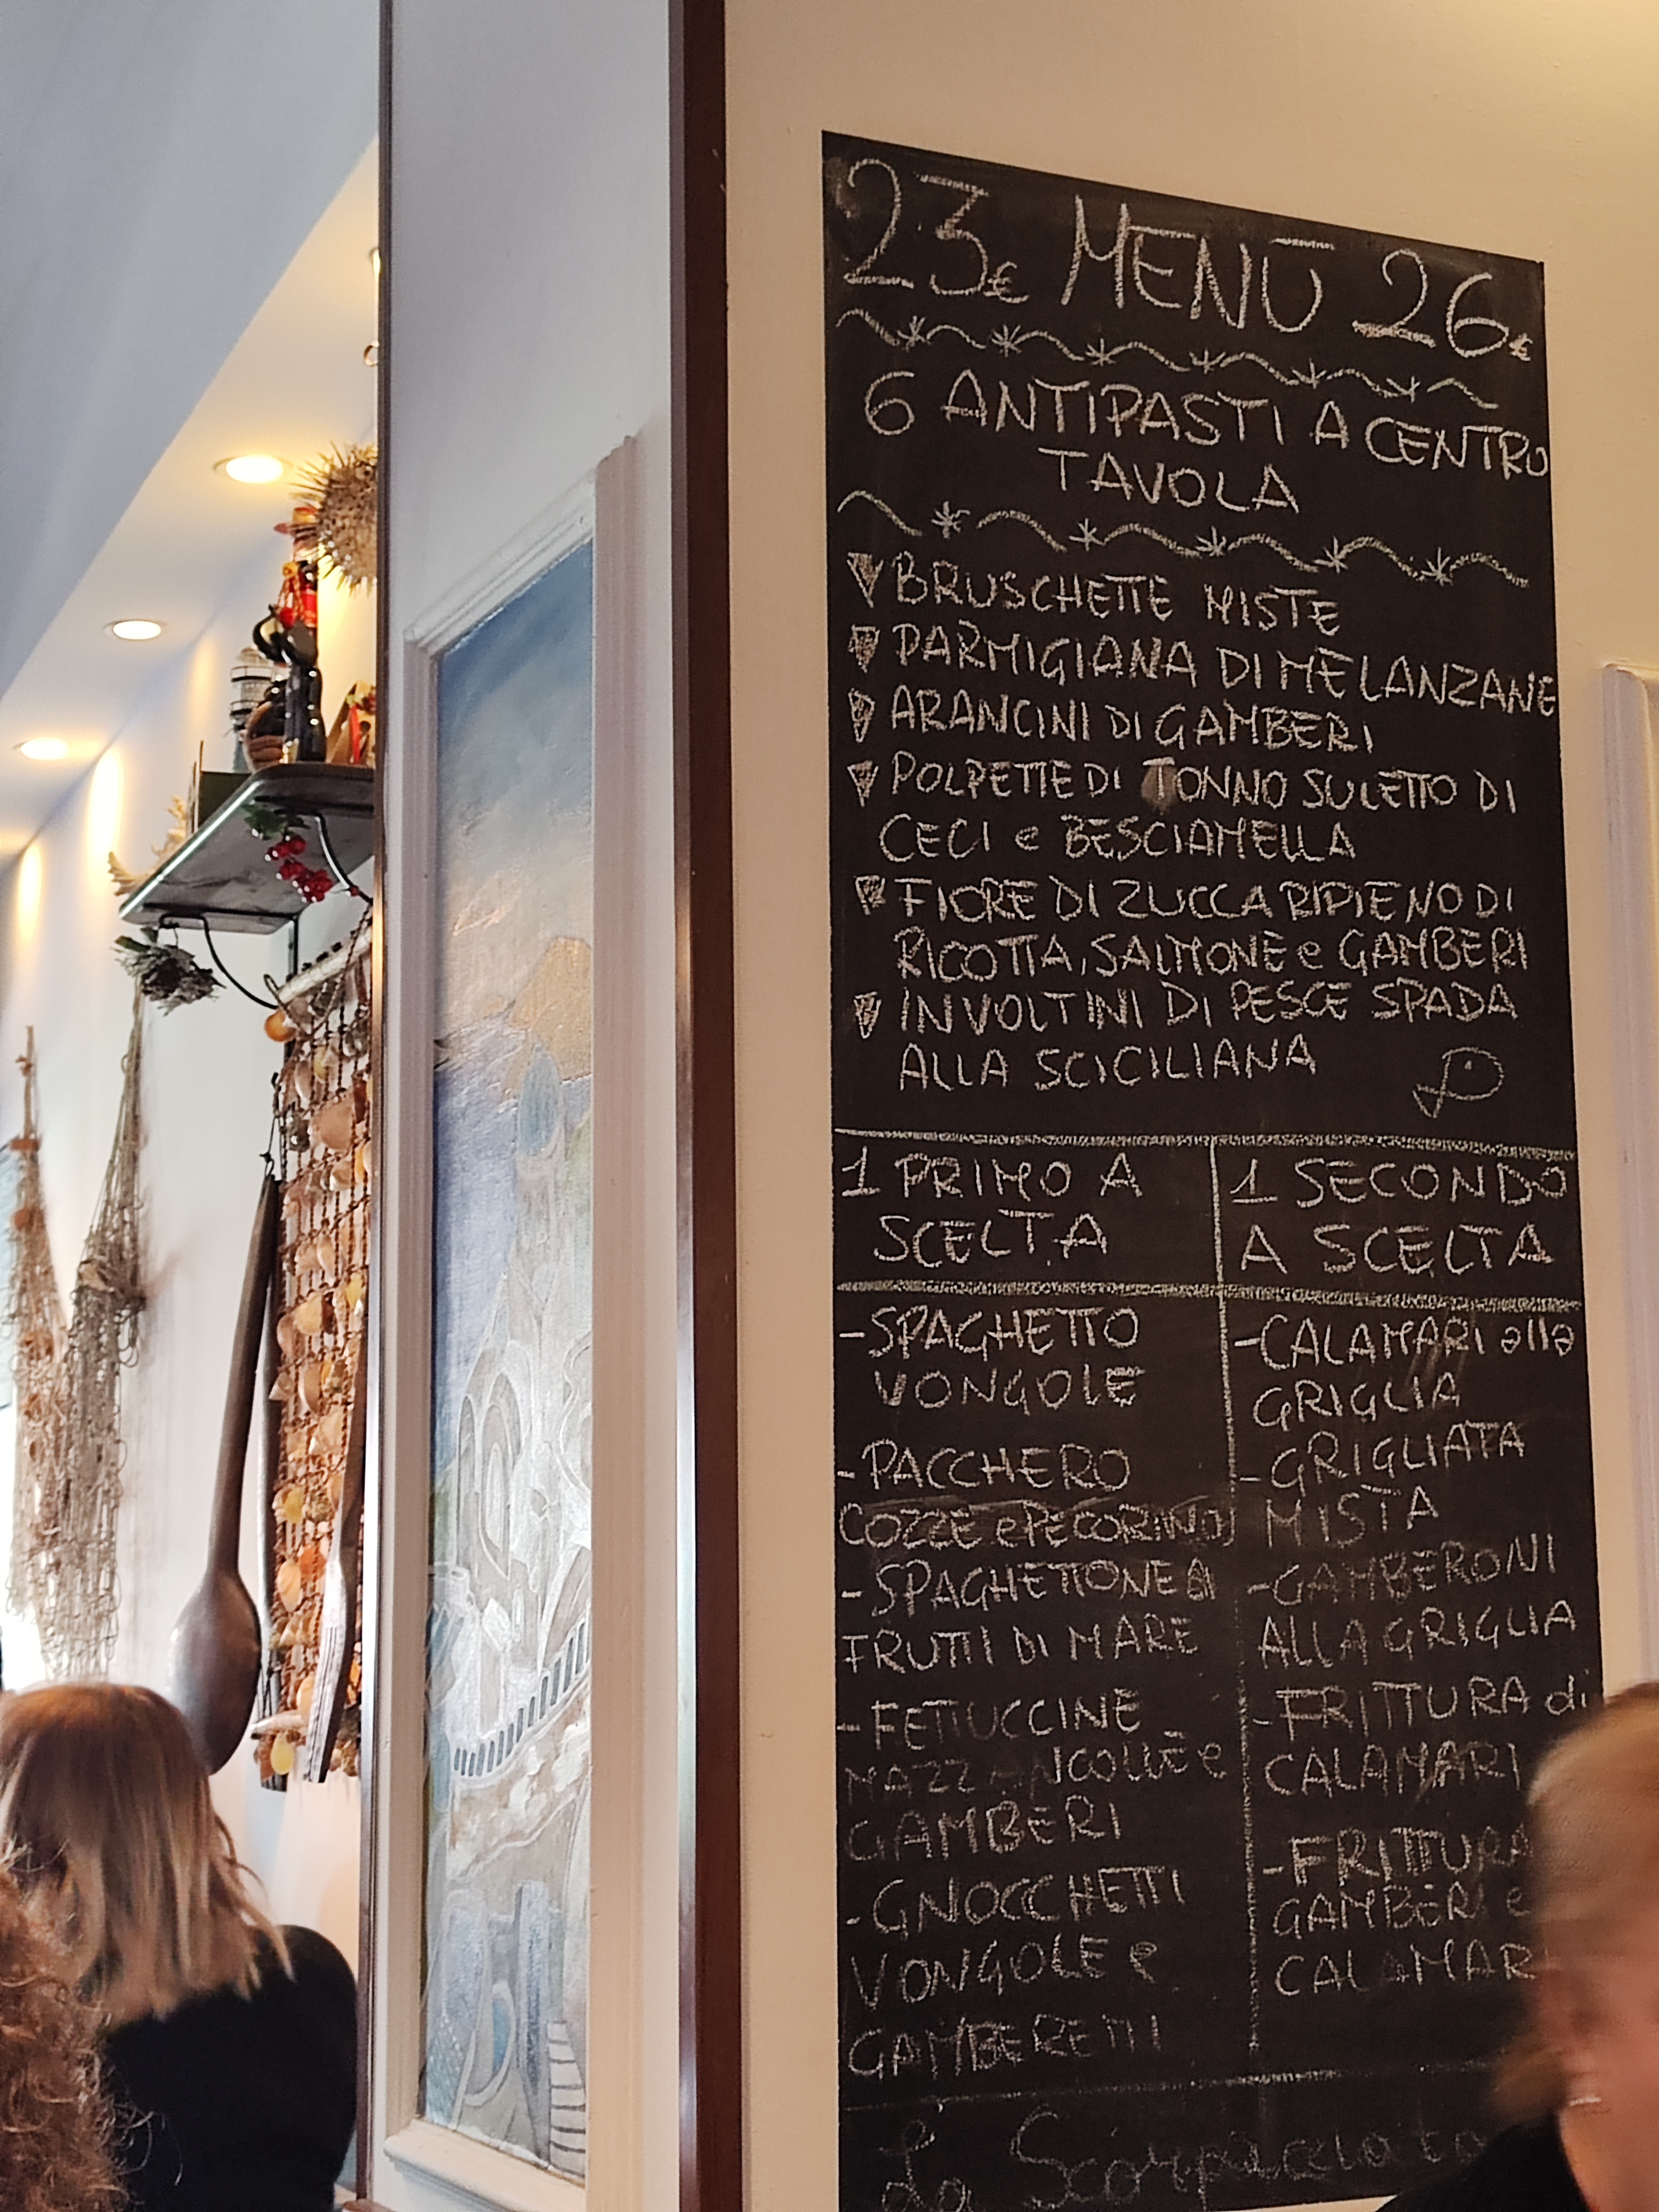 23€ MENÙ 26€
6 ANTIPASTI A CENTRO
TAVOLA
BRUSCHETTE MISTE
PARMIGIANA DI MELANZANE
ARANCINI DI GAMBERI
POLPETTE DI TONNO SU LETTO DI
CECI e BESCIAMELLA
FIORE DI ZUCCA RIPIENO DI
RICOTTA, SALMONE e GAMBERI
INVOLTINI DI PESCE SPADA
ALLA SCICILIANA
1 PRIMO A
SCELTA
-SPAGHETTO
VONGOLE
-PACCHERO
COZZE e PECORINO
-SPAGHETTONE AI
FRUTTI DI MARE
-FETTUCCINE
MAZZANCOLLE e
GAMBERI
-GNOCCHETTI
VONGOLE e
GAMBERETTI
1 SECONDO
A SCELTA
-CALAMARI alla
GRIGLIA
-GRIGLIATA
MISTA
-GAMBERONI
ALLA GRIGLIA
-FRITTURA di
CALAMARI
-FRITTURA
GAMBERI e
CALAMARI
La